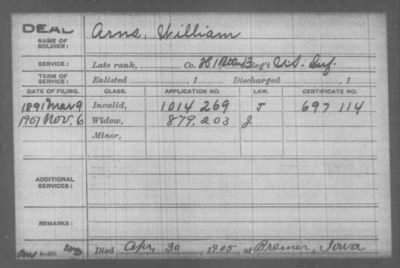 DEAL
NAME OF SOLDIER: Arns, William
SERVICE: Late rank, Co. H 1 Batt'n 13 Reg't U.S. Inf.
TERM OF SERVICE: Enlisted , 1 Discharged , 1
DATE OF FILING. CLASS. APPLICATION NO. LAW. CERTIFICATE NO.
1891 Mar 9 Invalid, 1014 269 J 697 114
1907 Nov. 6 Widow, 879.203 J
Minor,
ADDITIONAL SERVICES:
REMARKS:
Died Apr. 30, 1905, at Bremer, Iowa